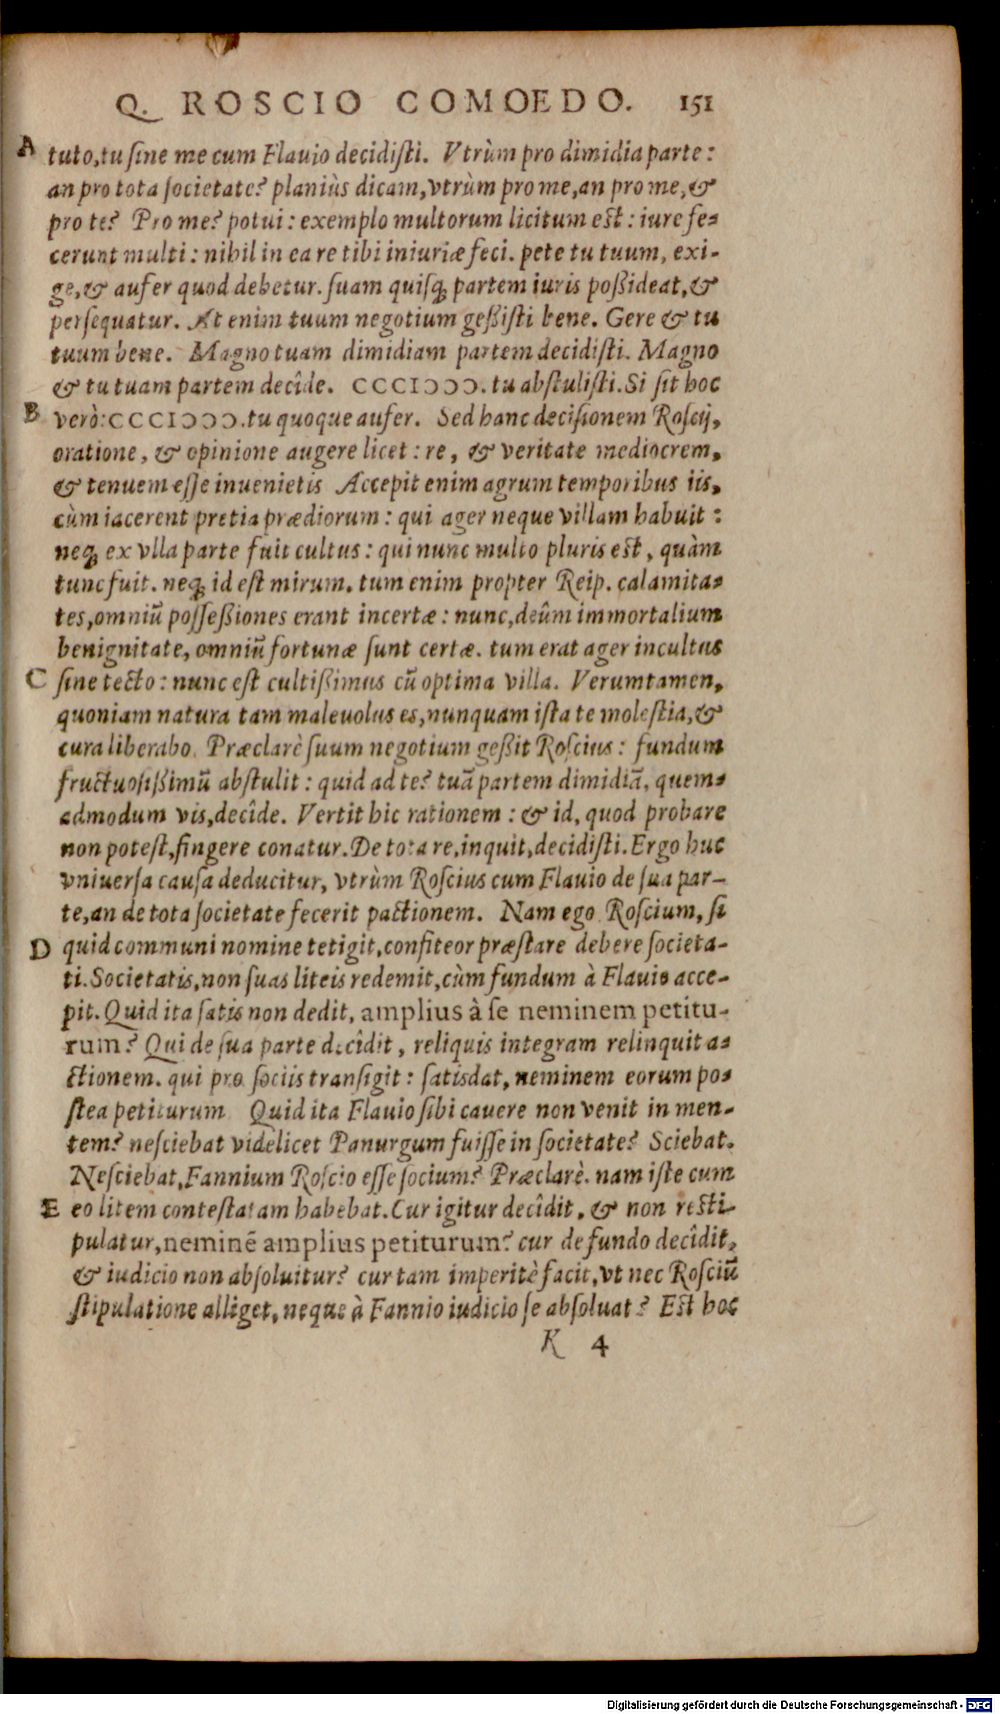 Q. ROSCIO COMOEDO. 151
A tuto, tu sine me cum Flauio decidisti. Vtrùm pro dimidia parte:
an pro tota societate? planiùs dicam, vtrùm pro me, an pro me, &
pro te? Pro me? potui: exemplo multorum licitum est: iure fe-
cerunt multi: nihil in ea re tibi iniuriæ feci. pete tu tuum, exi-
ge, & aufer quod debetur. suam quisq; partem iuris poßideat, &
persequatur. At enim tuum negotium geßisti bene. Gere & tu
tuum bene. Magno tuam dimidiam partem decidisti. Magno
& tu tuam partem decîde. CCCIƆƆƆ. tu abstulisti. Si sit hoc
B verò: CCCIƆƆƆ. tu quoque aufer. Sed hanc decisionem Roscij,
oratione, & opinione augere licet: re, & veritate mediocrem,
& tenuem esse inuenietis Accepit enim agrum temporibus iis,
cùm iacerent pretia prædiorum: qui ager neque villam habuit:
neq; ex vlla parte fuit cultus: qui nunc multo pluris est, quàm
tunc fuit. neq; id est mirum. tum enim propter Reip. calamita-
tes, omniũ possessiones erant incertæ: nunc, deûm immortalium
benignitate, omniũ fortunæ sunt certæ. tum erat ager incultus
C sine tecto: nunc est cultißimus cũ optima villa. Verumtamen,
quoniam natura tam maleuolus es, nunquam ista te molestia, &
cura liberabo. Præclarè suum negotium geßit Roscius: fundum
fructuosißimũ abstulit: quid ad te? tuã partem dimidiã, quem-
admodum vis, decîde. Vertit hic rationem: & id, quod probare
non potest, fingere conatur. De tota re, inquit, decidisti. Ergo huc
vniuersa causa deducitur, vtrùm Roscius cum Flauio de sua par-
te, an de tota societate fecerit pactionem. Nam ego Roscium, si
D quid communi nomine tetigit, confiteor præstare debere societa-
ti. Societatis, non suas liteis redemit, cùm fundum à Flauio acce-
pit. Quid ita satis non dedit, amplius à se neminem petitu-
rum? Qui de sua parte decîdit, reliquis integram relinquit a-
ctionem. qui pro sociis transigit: satisdat, neminem eorum po-
stea petiturum Quid ita Flauio sibi cauere non venit in men-
tem? nesciebat videlicet Panurgum fuisse in societate? Sciebat.
Nesciebat, Fannium Roscio esse socium? Præclarè. nam iste cum
E eo litem contestatam habebat. Cur igitur decîdit, & non resti-
pulatur, neminẽ amplius petiturum? cur de fundo decîdit,
& iudicio non absoluitur? cur tam imperitè facit, vt nec Rosciũ
stipulatione alliget, neque à Fannio iudicio se absoluat? Est hoc
K 4
Digitalisierung gefördert durch die Deutsche Forschungsgemeinschaft - DFG